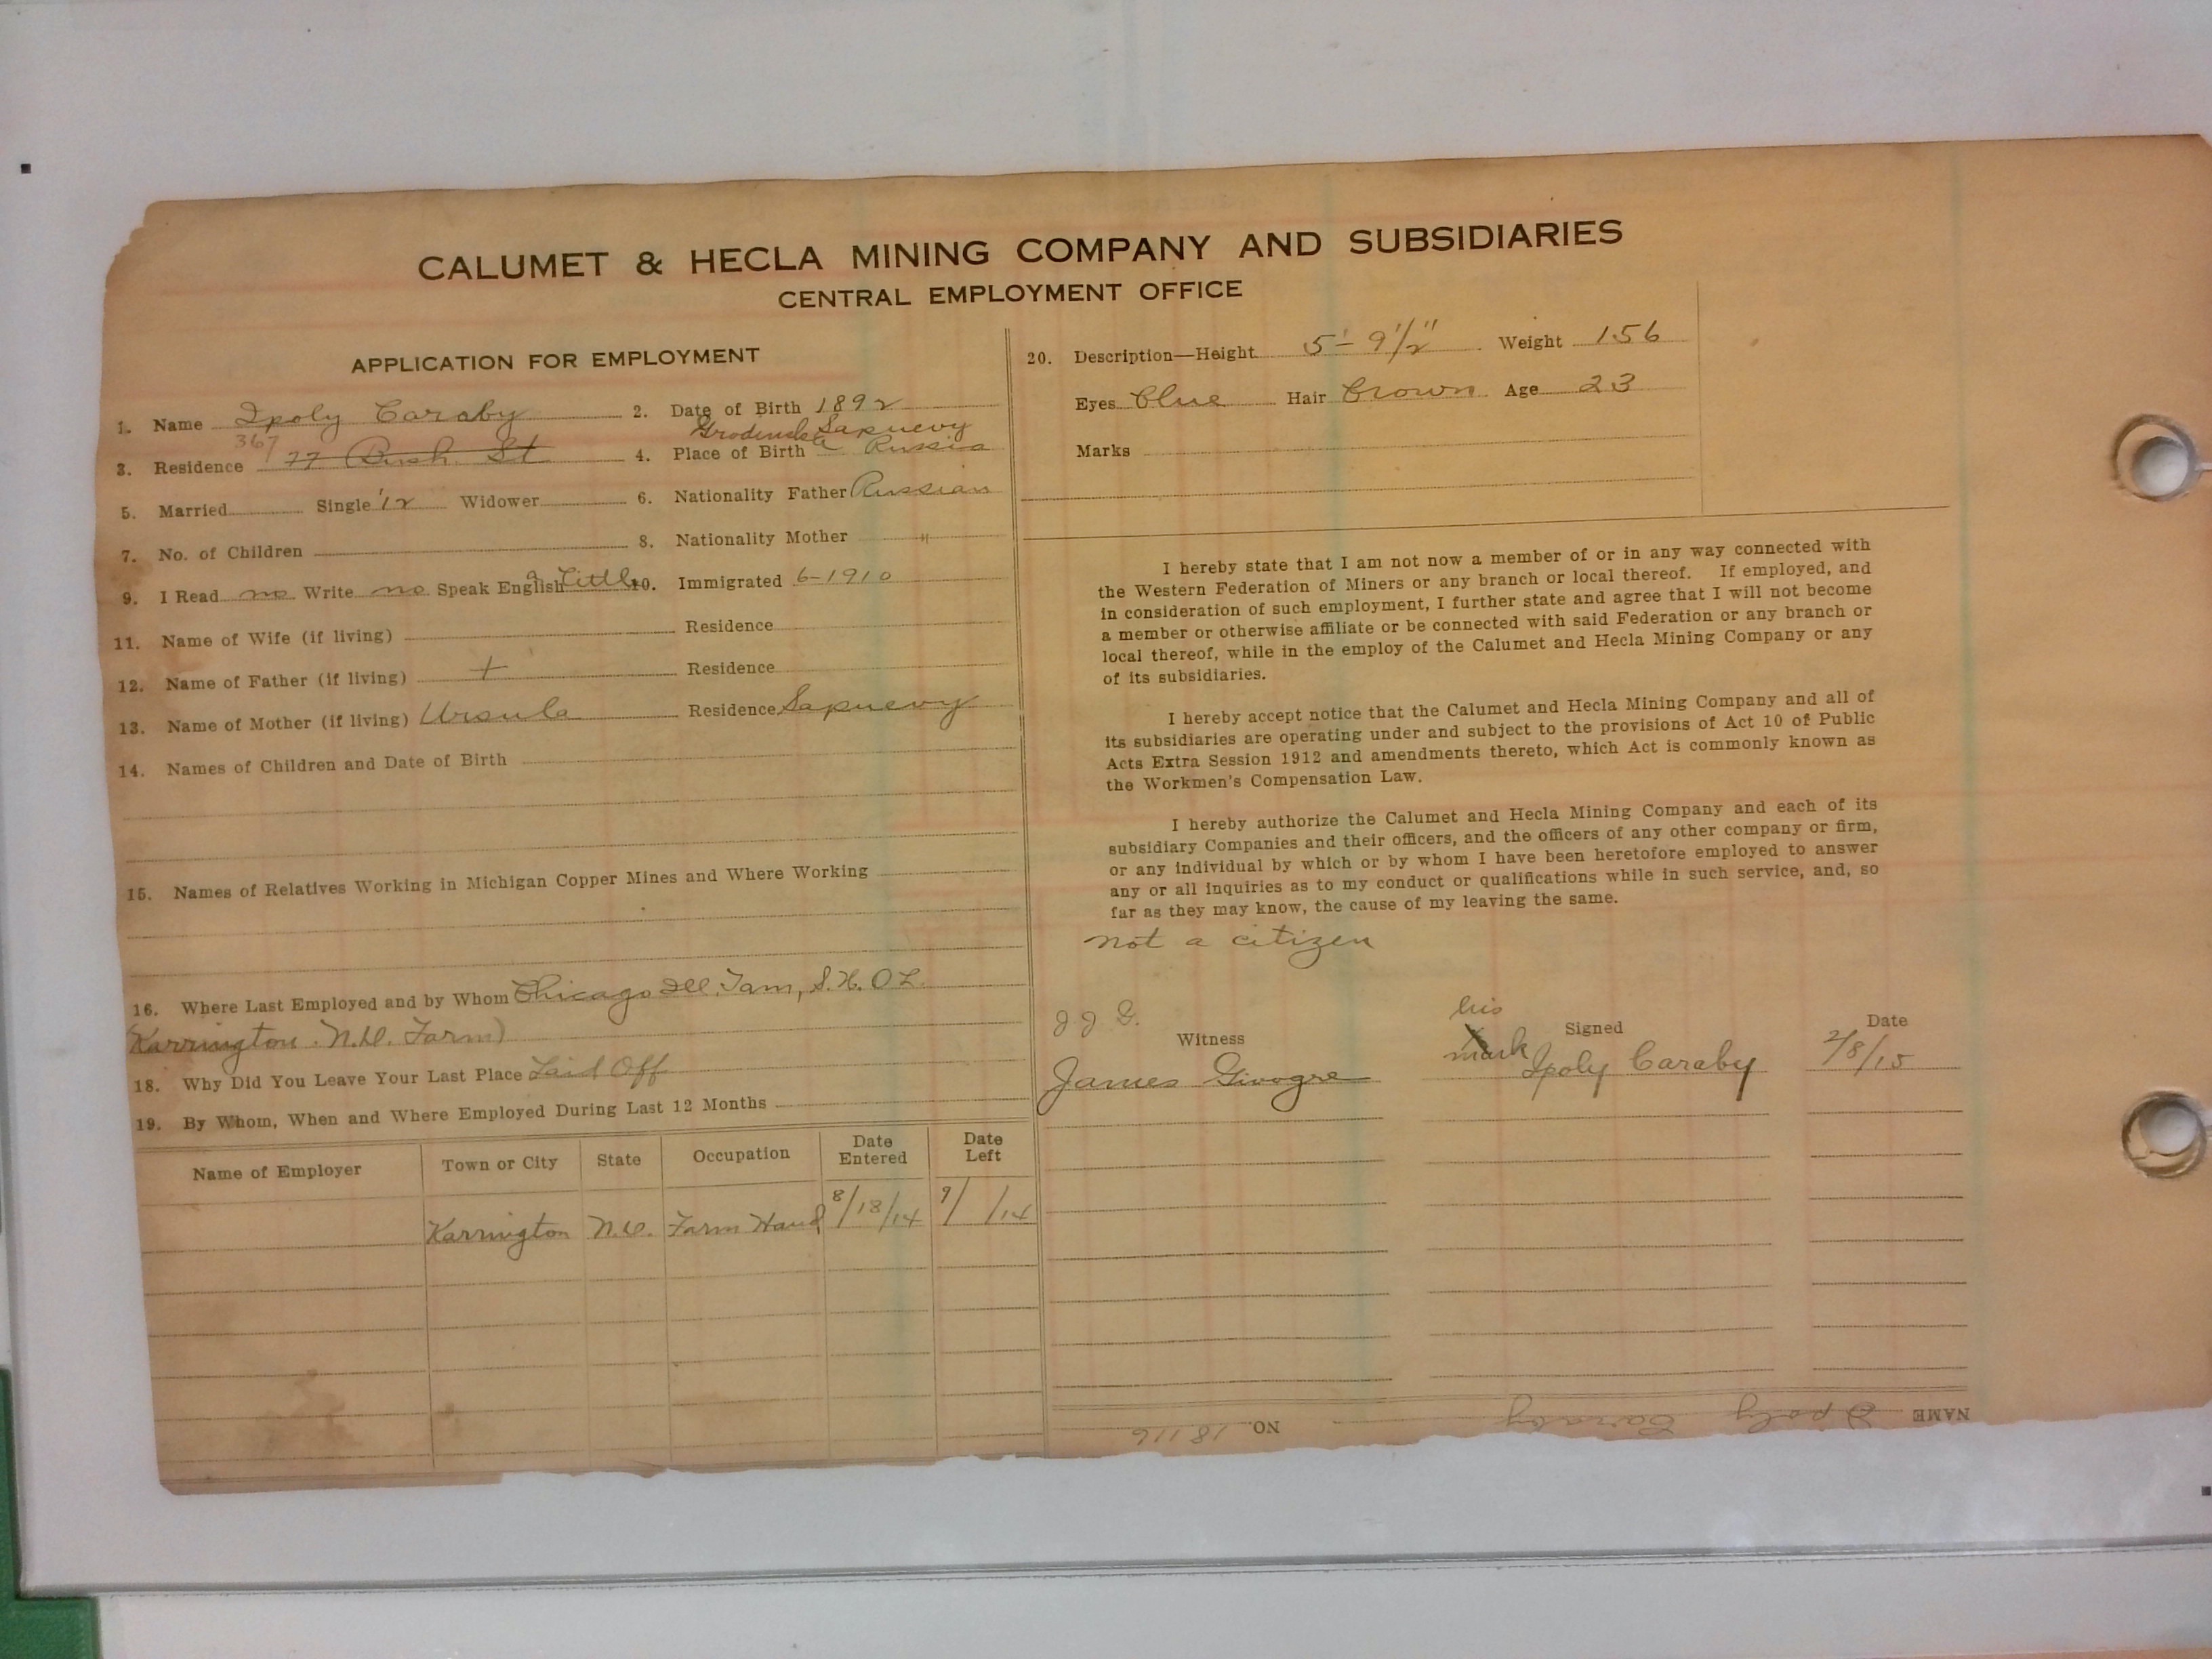 CALUMET & HECLA MINING COMPANY AND SUBSIDIARIES
CENTRAL EMPLOYMENT OFFICE
APPLICATION FOR EMPLOYMENT
1. Name Ipoly Caraby 2. Date of Birth 1892
367 Grodinska Sapuevy
3. Residence 77 Bush St 4. Place of Birth Russia
5. Married Single '12 Widower 6. Nationality Father Russian
7. No. of Children 8. Nationality Mother "
9. I Read no Write no Speak English a Little 10. Immigrated 6-1910
11. Name of Wife (if living) Residence
12. Name of Father (if living) + Residence
13. Name of Mother (if living) Ursula Residence Sapuevy
14. Names of Children and Date of Birth
15. Names of Relatives Working in Michigan Copper Mines and Where Working
16. Where Last Employed and by Whom Chicago Ill.
Karrington. N.D. Farm)
18. Why Did You Leave Your Last Place Laid Off
19. By Whom, When and Where Employed During Last 12 Months
Name of Employer Town or City State Occupation Date Entered Date Left
Karrington N.D. Farm Hand 8/18/14 9/ /14
20. Description—Height 5'-9 1/2" Weight 156
Eyes Blue Hair Brown Age 23
Marks
I hereby state that I am not now a member of or in any way connected with
the Western Federation of Miners or any branch or local thereof. If employed, and
in consideration of such employment, I further state and agree that I will not become
a member or otherwise affiliate or be connected with said Federation or any branch or
local thereof, while in the employ of the Calumet and Hecla Mining Company or any
of its subsidiaries.
I hereby accept notice that the Calumet and Hecla Mining Company and all of
its subsidiaries are operating under and subject to the provisions of Act 10 of Public
Acts Extra Session 1912 and amendments thereto, which Act is commonly known as
the Workmen's Compensation Law.
I hereby authorize the Calumet and Hecla Mining Company and each of its
subsidiary Companies and their officers, and the officers of any other company or firm,
or any individual by which or by whom I have been heretofore employed to answer
any or all inquiries as to my conduct or qualifications while in such service, and, so
far as they may know, the cause of my leaving the same.
not a citizen
J J G. his
Witness X Signed Date
James mark Ipoly Caraby 2/8/15
NAME Ipoly Caraby NO. 18116